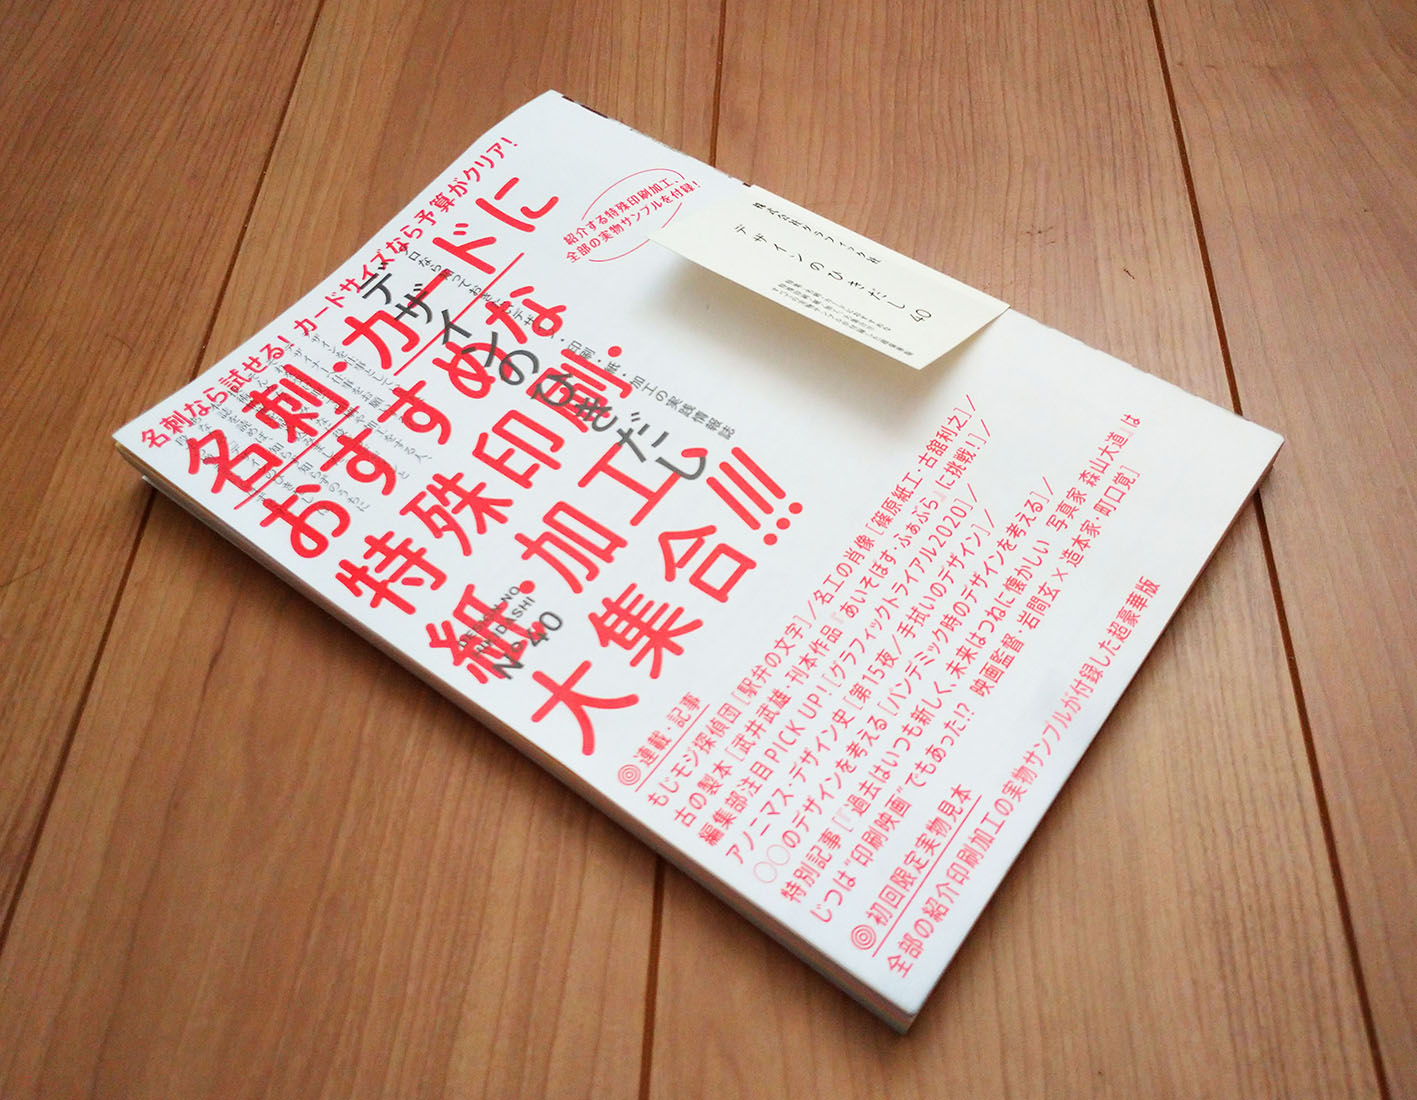 名刺なら試せる! カードサイズなら予算がクリア!
名刺・カードに
おすすめな
特殊印刷・
紙・加工
大集合!!!
紹介する特殊印刷加工、
全部の実物サンプルを付録!
デザインのひきだし
DESIGN NO
HIKIDASHI
No 40
株式会社グラフィック社
デザインのひきだし 40
◎連載・記事
もじモジ探偵団[駅弁の文字]/名工の肖像[篠原紙工・古舘利之]/
古の製本[武井武雄・刊本作品『あいそぽす・ふぁぶら』に挑戦!]/
編集部注目PICK UP![グラフィックトライアル2020]/
アノニマス・デザイン史[第15夜/手拭いのデザイン]/
〇〇のデザインを考える[パンデミック時のデザインを考える]/
特別記事[『過去はいつも新しく、未来はつねに懐かしい 写真家 森山大道』は
じつは“印刷映画”でもあった!? 映画監督・岩間玄×造本家・町口覚]
◎初回限定実物見本
全部の紹介印刷加工の実物サンプルが付録した超豪華版